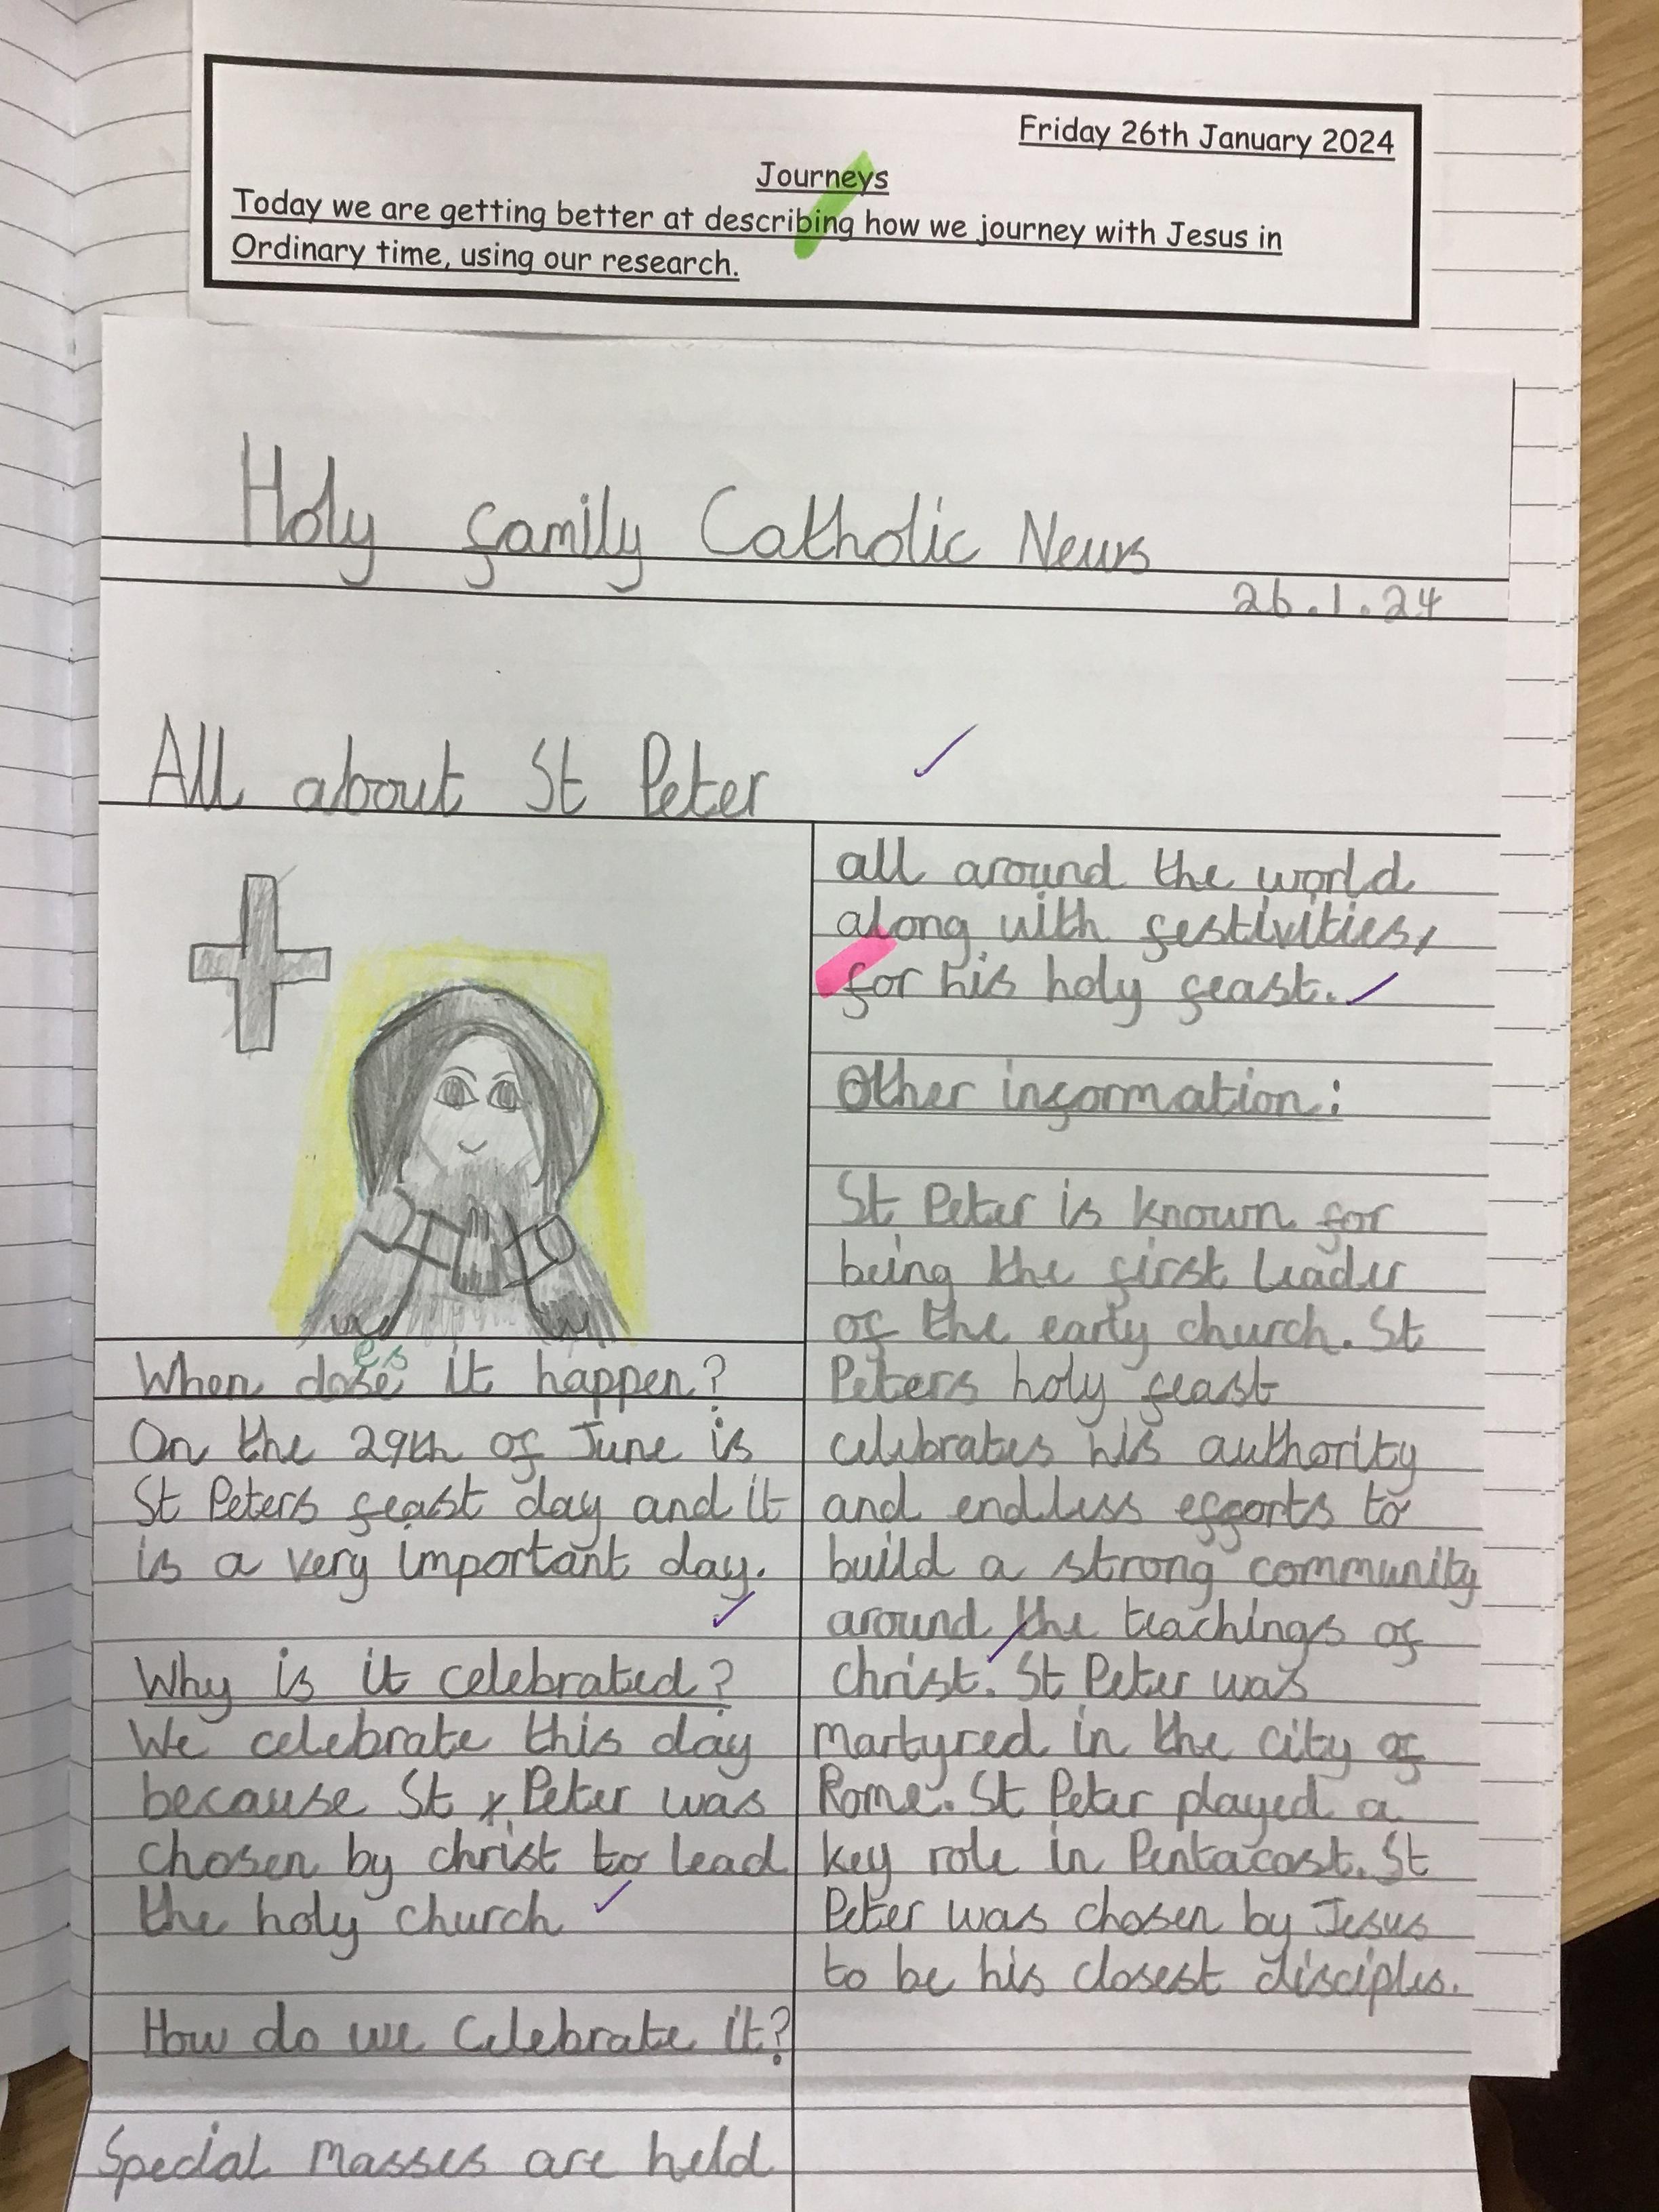 Friday 26th January 2024
Journeys
Today we are getting better at describing how we journey with Jesus in
Ordinary time, using our research.
Holy family Catholic News
26.1.24
All about St Peter
When dose it happen?
es
On the 29th of June is
St Peters feast day and it
is a very important day.
Why is it celebrated?
We celebrate this day
because St Peter was
chosen by christ to lead
the holy church
How do we Celebrate it?
Special Masses are held
all around the world
along with festivities,
for his holy feast.
Other information:
St Peter is known for
being the first leader
of the early church. St
Peters holy feast
celebrates his authority
and endless efforts to
build a strong community
around the teachings of
christ. St Peter was
martyred in the city of
Rome. St Peter played a
key role in Pentacost. St
Peter was chosen by Jesus
to be his closest disciples.